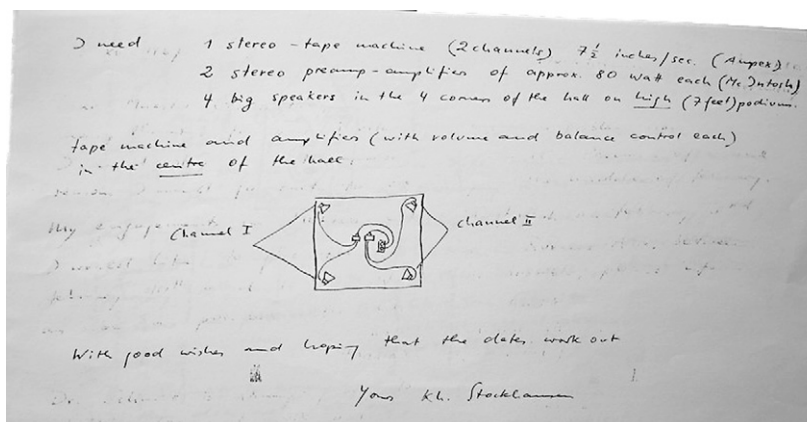 I need 1 stereo-tape machine (2 channels) 7 ½ inches/sec. (Ampex)
2 stereo preamp-amplifies of approx. 80 watt each (Mc.Intosh)
4 big speakers in the 4 corners of the hall on high (7 feet) podiums.
tape machine and amplifies (with volume and balance control each)
in the centre of the hall.
Channel I
channel II
With good wishes and hoping that the dates work out
Yours Kh. Stockhausen